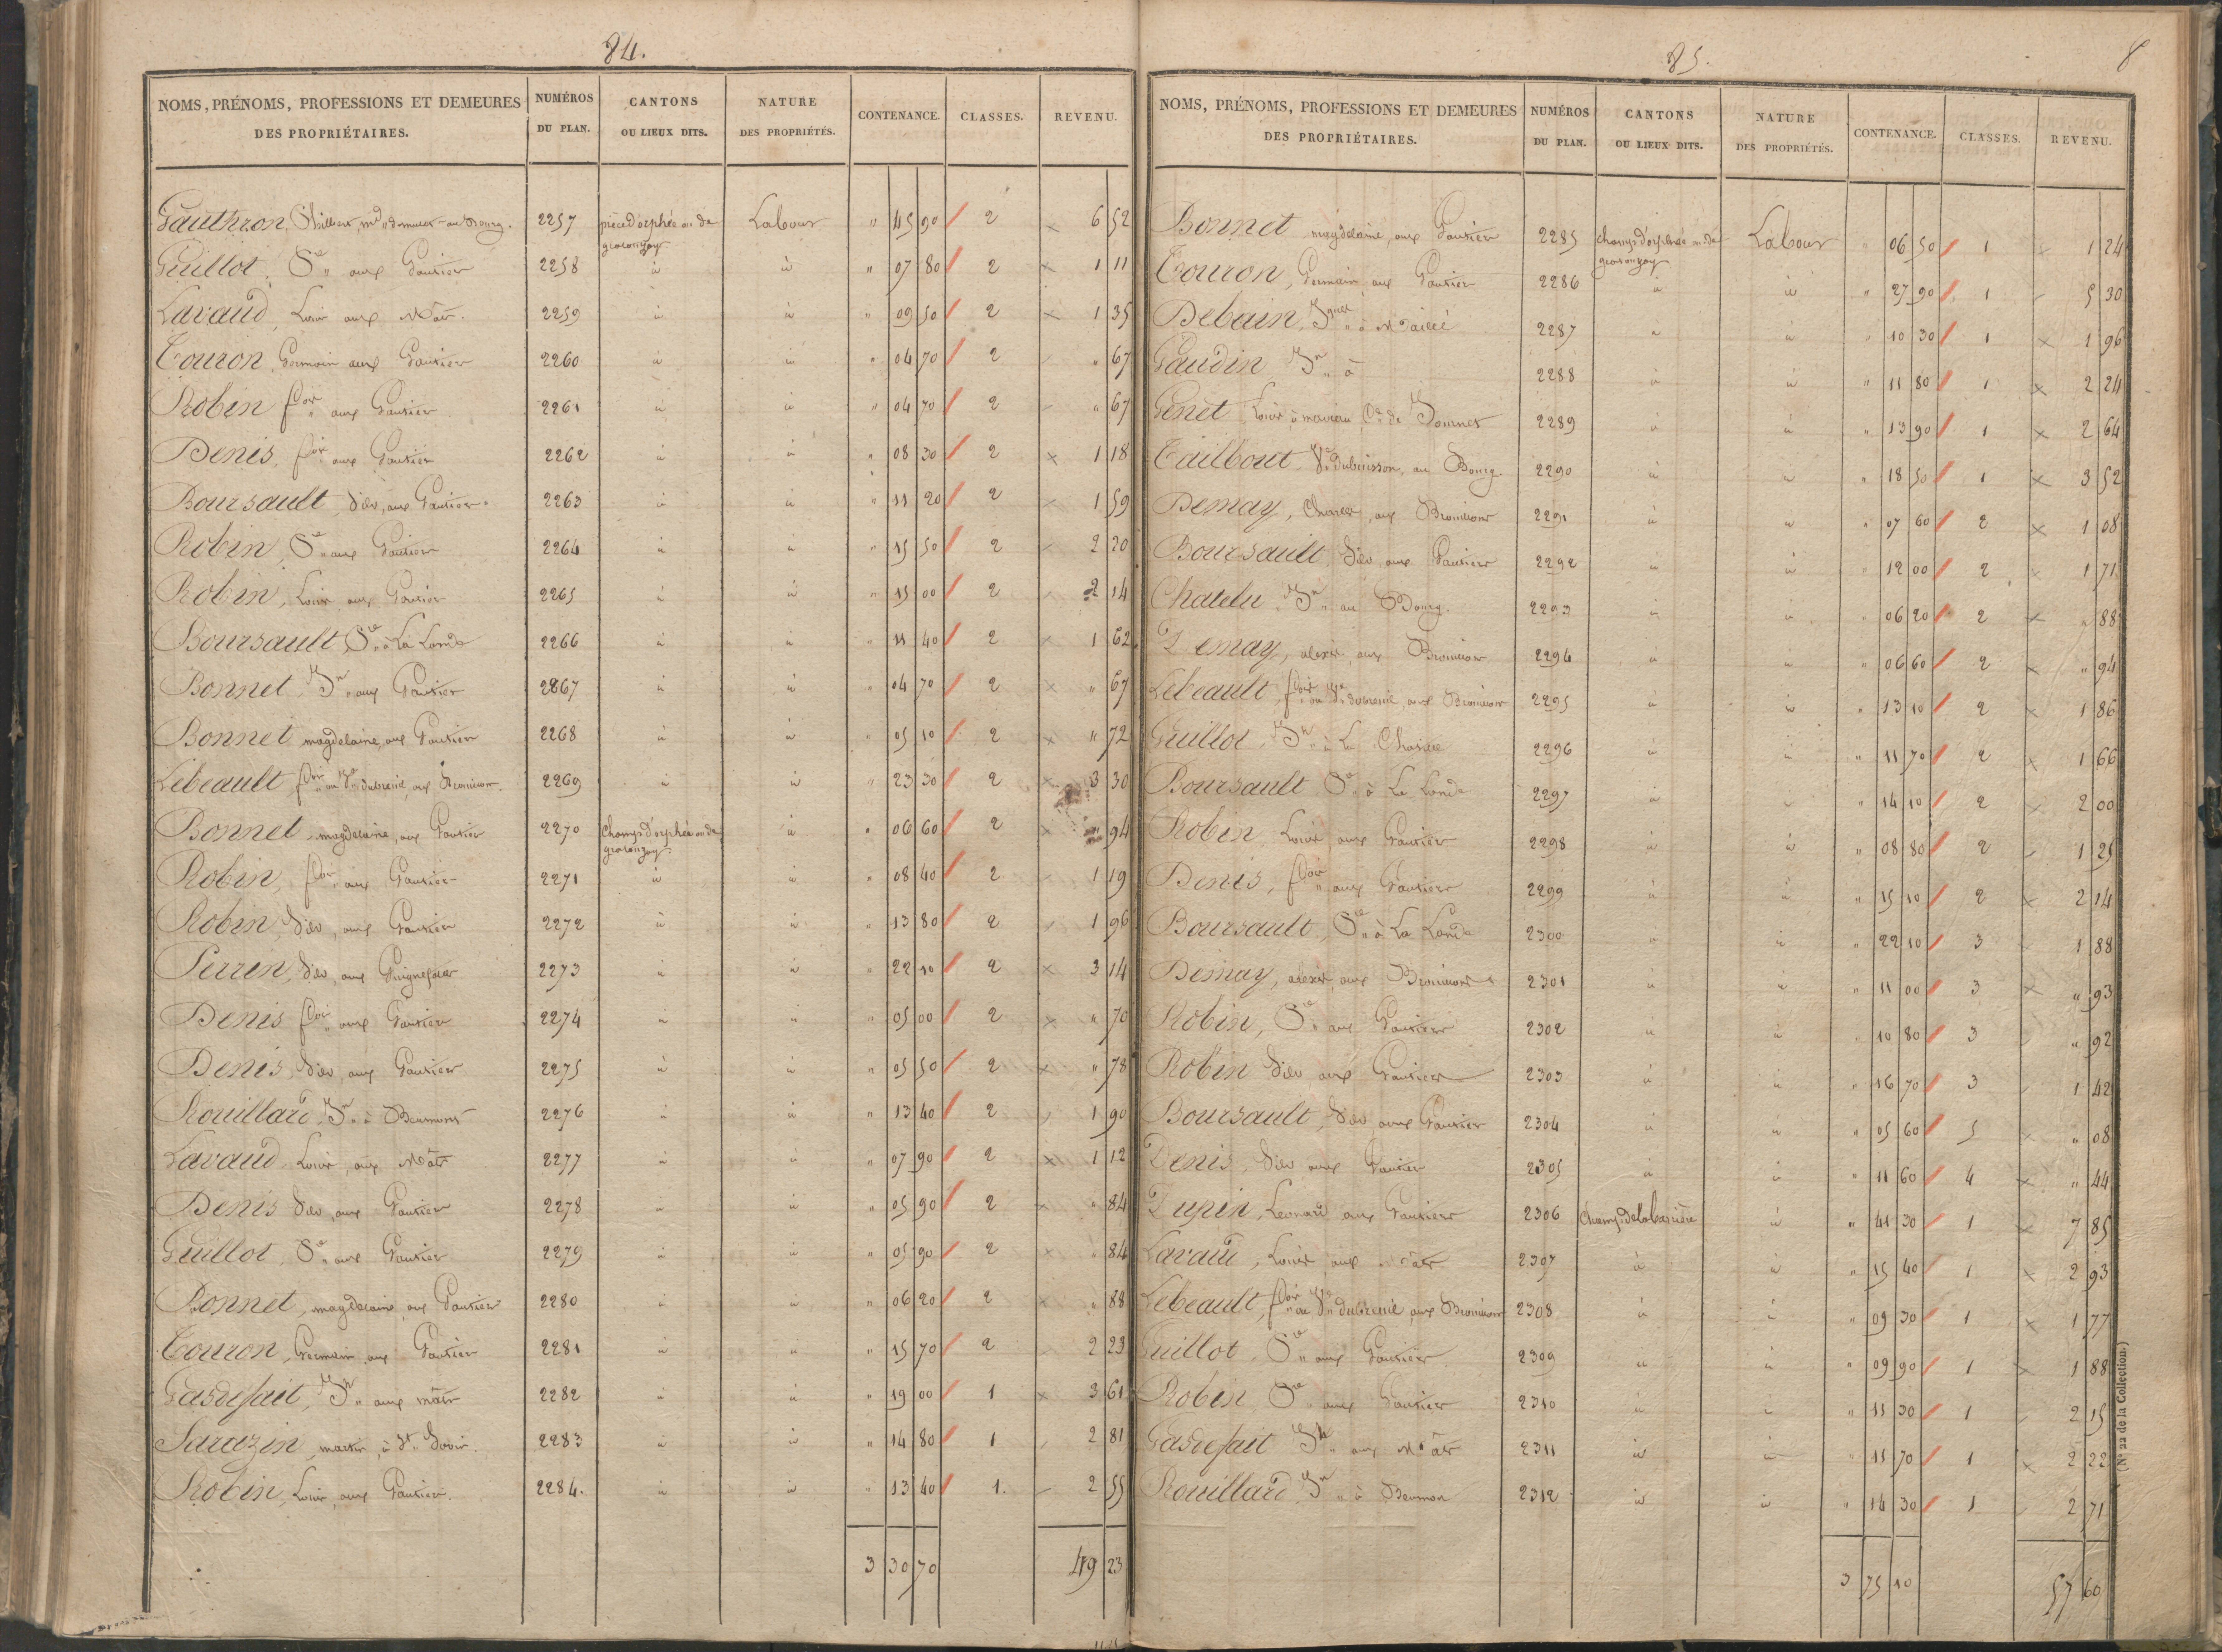 84.
NOMS, PRÉNOMS, PROFESSIONS ET DEMEURES DES PROPRIÉTAIRES. NUMÉROS DU PLAN. CANTONS OU LIEUX DITS. NATURE DES PROPRIÉTÉS. CONTENANCE. CLASSES. REVENU.
Gauthron, md de mules au Bourg. 2257 pièce d'orphée ou de Labour " 45 90 2 6 52
Guillot, Se aux Gautier 2258 id id " 07 80 2 1 11
Lavaud, Louis aux Mâts. 2259 id id " 09 50 2 1 35
Touron, Germain aux Gautier 2260 id id " 04 70 2 " 67
Robin flor aux Gautier 2261 id id " 04 70 2 " 67
Denis, flor aux Gautier 2262 id id " 08 30 2 1 18
Boursault, Silv, aux Gautier 2263 id id " 11 20 2 1 59
Robin, Se aux Gautier 2264 id id " 15 50 2 2 20
Robin, Louis aux Gautier 2265 id id " 15 00 2 2 14
Boursault Se à La Lande 2266 id id " 11 40 2 1 62
Bonnet, Jn aux Gautier 2267 id id " 04 70 2 " 67
Bonnet magdelaine, aux Gautier 2268 id id " 05 10 2 " 72
Lebeault, flor ou Ve dubreuil, aux 2269 id id " 23 30 2 3 30
Bonnet magdelaine, aux Gautier 2270 Champ d'orphée ou de id " 06 60 2 " 94
Robin, flor aux Gautier 2271 id id " 08 40 2 1 19
Robin, Silv, aux Gautier 2272 id id " 13 80 2 1 96
Perrin, Silv, aux 2273 id id " 22 10 2 3 14
Denis flor aux Gautier 2274 id id " 05 00 2 " 70
Denis, Silv, aux Gautier 2275 id id " 05 50 2 " 78
Rouillard, Jn à Beaumont 2276 id id " 13 40 2 1 90
Lavaud Louis, aux Mâts 2277 id id " 07 90 2 1 12
Denis Silv, aux Gautier 2278 id id " 05 90 2 " 84
Guillot, Se aux Gautier 2279 id id " 05 90 2 " 84
Bonnet, magdelaine aux Gautier 2280 id id " 06 20 2 " 88
Touron, Germain aux Gautier 2281 id id " 15 70 2 2 23
Gasdefait, Jn aux mâts 2282 id id " 19 00 1 3 61
Sarazin, martin, à St Savin. 2283 id id " 14 80 1 2 81
Robin, Louis, aux Gautier. 2284. id id " 13 40 1. 2 55
3 30 70 49 23
85. 8
NOMS, PRÉNOMS, PROFESSIONS ET DEMEURES DES PROPRIÉTAIRES. NUMÉROS DU PLAN. CANTONS OU LIEUX DITS. NATURE DES PROPRIÉTÉS. CONTENANCE. CLASSES. REVENU.
Bonnet magdelaine, aux Gautier 2285 champ d'orphée ou de Labour " 06 50 1 1 24
Touron, Germain aux Gautier 2286 id id " 27 90 1 5 30
Debain, à Maillé 2287 id id " 10 30 1 1 96
Gaudin Jn à 2288 id id " 11 80 1 2 24
Genet, Louis à Cne de Journet 2289 id id " 13 90 1 2 64
Tailbout, Ve Dubuisson, au Bourg. 2290 id id " 18 50 1 3 52
Demay, Charles, aux 2291 id id " 07 60 2 1 08
Boursault, Silv aux Gautier 2292 id id " 12 00 2 1 71
Chatelu, Jn au Bourg. 2293 id id " 06 20 2 " 88
Demay, alexis, aux 2294 id id " 06 60 2 " 94
Lebeault, flor ou Ve dubreuil, aux 2295 id id " 13 10 2 1 86
Guillot, Jn à La 2296 id id " 11 70 2 1 66
Boursault Se à La Lande 2297 id id " 14 10 2 2 00
Robin, Louis aux Gautier 2298 id id " 08 80 2 1 25
Denis, flor aux Gautier 2299 id id " 15 10 2 2 14
Boursault, Se à La Lande 2300 id id " 22 10 3 1 88
Demay, alexis, aux 2301 id id " 11 00 3 " 93
Robin, Se aux Gautier 2302 id id " 10 80 3 " 92
Robin Silv aux Gautier 2303 id id " 16 70 3 1 42
Boursault, Silv aux Gautier 2304 id id " 05 60 5 " 08
Denis, Silv aux Gautier 2305 id id " 11 60 4 " 44
Dupin, Leonard aux Gautier 2306 Champ de la id " 41 30 1 7 85
Lavaud, Louis aux Mâts 2307 id id " 15 40 1 2 93
Lebeault, flor ou Ve dubreuil aux 2308 id id " 09 30 1 1 77
Guillot, Se aux Gautier 2309 id id " 09 90 1 1 88
Robin, Se aux Gautier 2310 id id " 11 30 1 2 15
Gasdefait Jn aux Mâts 2311 id id " 11 70 1 2 22
Rouillard, Jn à Beaumon 2312 id id " 14 30 1 2 71
3 75 10 57 60
(N° 22 de la Collection.)